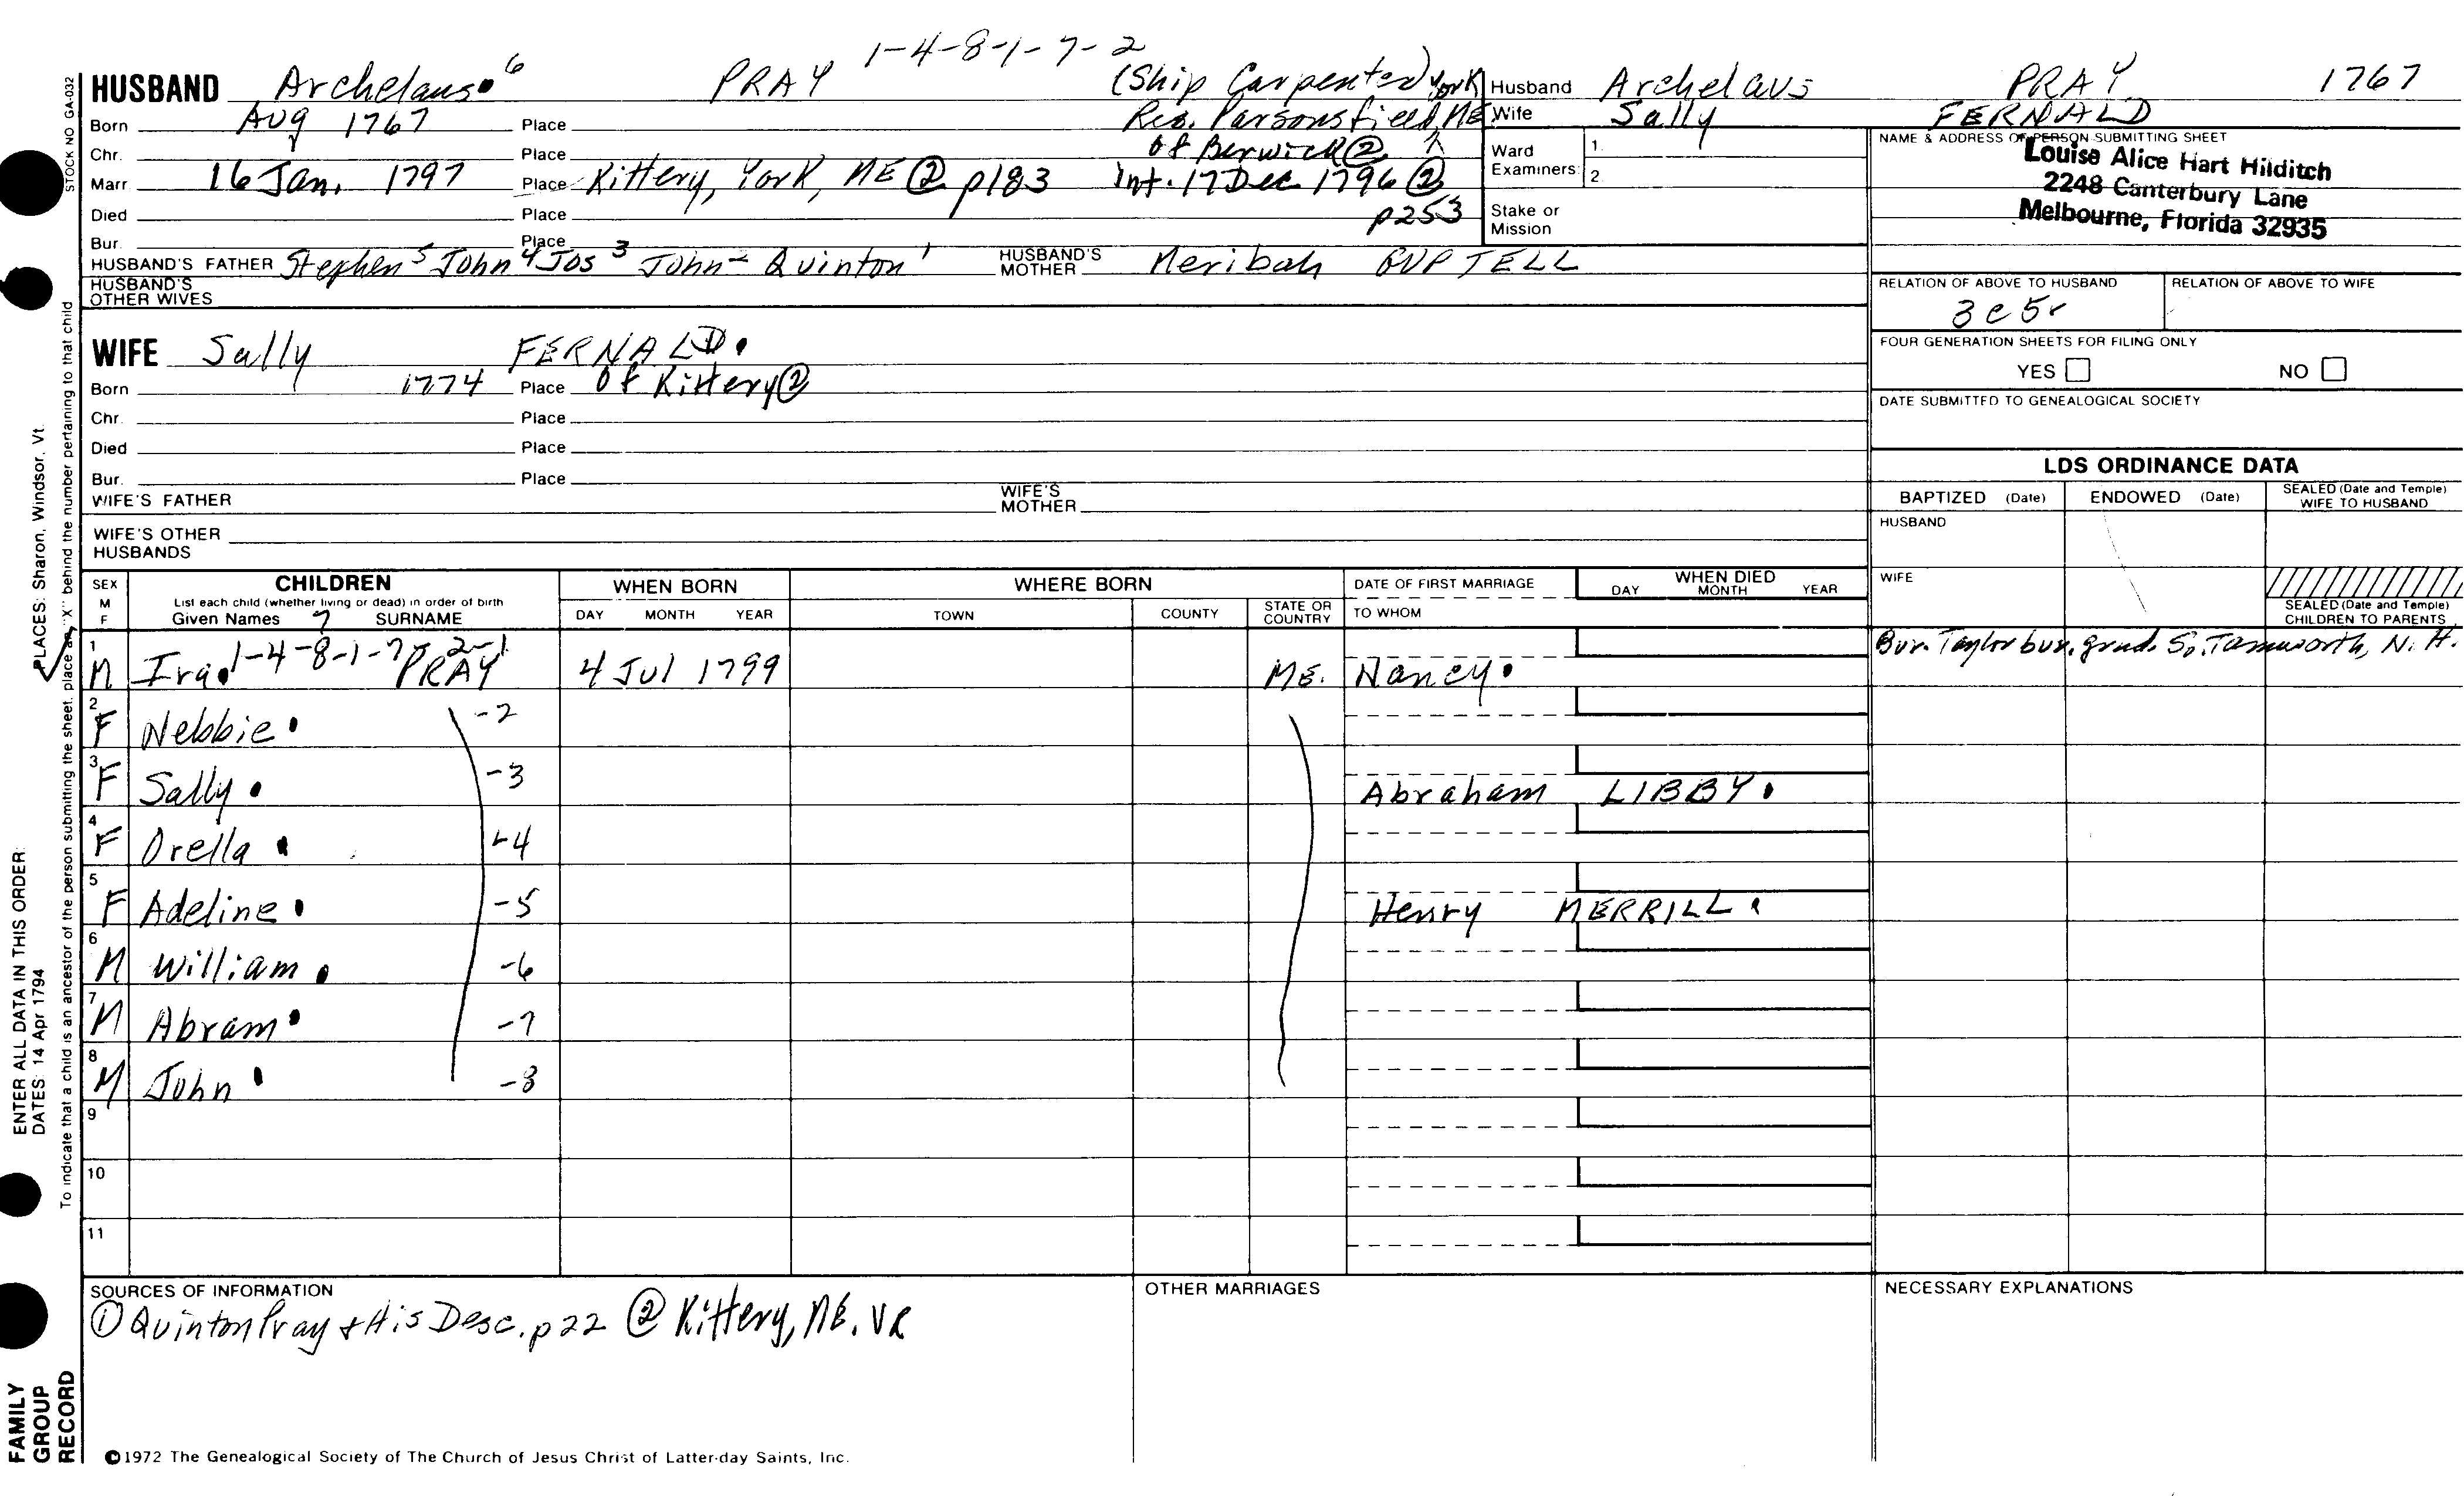 1-4-8-1-7-2
HUSBAND Archelaus 6 PRAY (Ship Carpenter)
Born Aug 1767 Place Res. Parsonsfield, York ME
Chr. Place of Berwick ②
Marr. 16 Jan. 1797 Place Kittery, York, ME ② p183 Int. 17 Dec 1796 ②
Died Place p253
Bur. Place
HUSBAND'S FATHER Stephen 5 John 4 Jos 3 John 2 Quinton 1 HUSBAND'S MOTHER Meribah GUPTELL
HUSBAND'S OTHER WIVES
WIFE Sally FERNALD.
Born 1774 Place of Kittery ②
Chr. Place
Died Place
Bur. Place
WIFE'S FATHER WIFE'S MOTHER
WIFE'S OTHER HUSBANDS
Husband Archelaus PRAY 1767
Wife Sally FERNALD
Ward Examiners: 1. 2.
Stake or Mission
NAME & ADDRESS OF PERSON SUBMITTING SHEET
Louise Alice Hart Hilditch
2248 Canterbury Lane
Melbourne, Florida 32935
RELATION OF ABOVE TO HUSBAND RELATION OF ABOVE TO WIFE
3c5r
FOUR GENERATION SHEETS FOR FILING ONLY
YES NO
DATE SUBMITTED TO GENEALOGICAL SOCIETY
LDS ORDINANCE DATA
BAPTIZED (Date) ENDOWED (Date) SEALED (Date and Temple) WIFE TO HUSBAND
HUSBAND
WIFE
SEALED (Date and Temple) CHILDREN TO PARENTS
SEX M F CHILDREN WHEN BORN WHERE BORN DATE OF FIRST MARRIAGE WHEN DIED
List each child (whether living or dead) in order of birth
Given Names 7 SURNAME DAY MONTH YEAR TOWN COUNTY STATE OR COUNTRY TO WHOM DAY MONTH YEAR
1 M Ira. 1-4-8-1-7-2-1 PRAY 4 Jul 1799 ME. Nancy. Bur. Taylor bur. grnd. So. Tamworth, N.H.
2 F Nebbie. -2
3 F Sally. -3 Abraham LIBBY.
4 F Orella. -4
5 F Adeline. -5 Henry MERRILL.
6 M William. -6
7 M Abram. -7
8 M John. -8
9
10
11
SOURCES OF INFORMATION
① Quinton Pray + His Desc. p22 ② Kittery, ME. VR
OTHER MARRIAGES
NECESSARY EXPLANATIONS
©1972 The Genealogical Society of The Church of Jesus Christ of Latter-day Saints, Inc.
STOCK NO GA-032
To indicate that a child is an ancestor of the person submitting the sheet, place an "X" behind the number pertaining to that child
ENTER ALL DATA IN THIS ORDER:
PLACES: Sharon, Windsor, Vt.
DATES: 14 Apr 1794
FAMILY
GROUP
RECORD